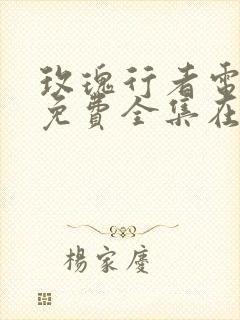 玫瑰行者電
免費全集在
楊家慶